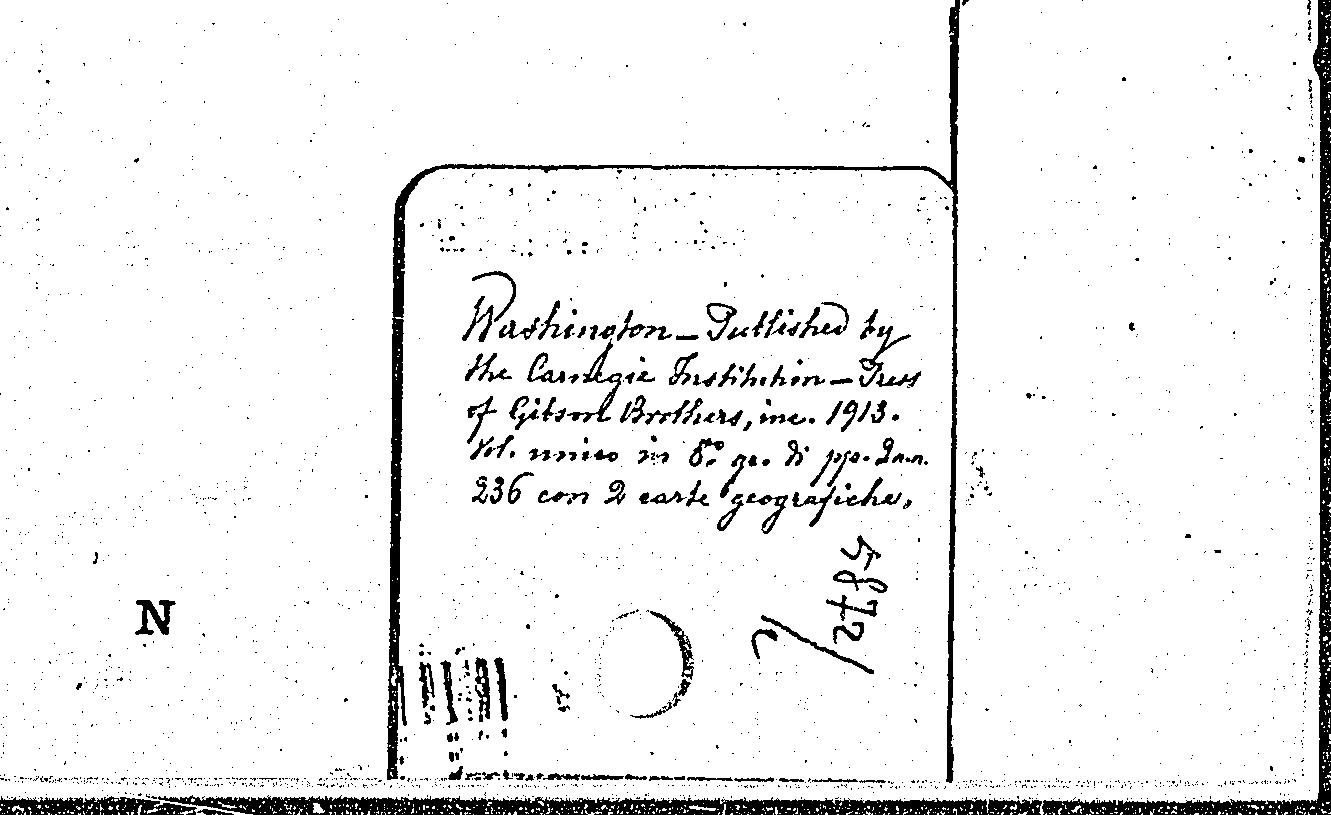 Washington – Published by
the Carnegie Institution – Press
of Gibson Brothers, inc. 1913.
Vol. unico in 8.° gr. di pp. 2 n.n.
236 con 2 carte geografiche.
5872/2
N